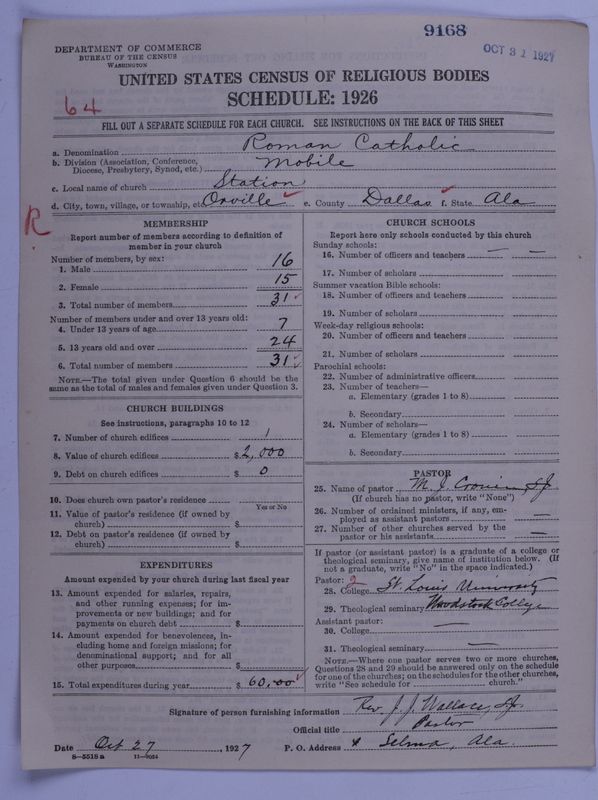 9168
OCT 31 1927
DEPARTMENT OF COMMERCE
BUREAU OF THE CENSUS
WASHINGTON
UNITED STATES CENSUS OF RELIGIOUS BODIES
SCHEDULE: 1926
64
FILL OUT A SEPARATE SCHEDULE FOR EACH CHURCH. SEE INSTRUCTIONS ON THE BACK OF THIS SHEET
a. Denomination Roman Catholic
b. Division (Association, Conference, Diocese, Presbytery, Synod, etc.) Mobile
c. Local name of church Station
d. City, town, village, or township, etc. Orville e. County Dallas f. State Ala
R
MEMBERSHIP
Report number of members according to definition of
member in your church
Number of members, by sex:
1. Male 16
2. Female 15
3. Total number of members 31
Number of members under and over 13 years old:
4. Under 13 years of age 7
5. 13 years old and over 24
6. Total number of members 31
NOTE.—The total given under Question 6 should be the
same as the total of males and females given under Question 3.
CHURCH BUILDINGS
See instructions, paragraphs 10 to 12
7. Number of church edifices 1
8. Value of church edifices $ 2,000
9. Debt on church edifices $ 0
10. Does church own pastor's residence
Yes or No
11. Value of pastor's residence (if owned by
church) $
12. Debt on pastor's residence (if owned by
church) $
EXPENDITURES
Amount expended by your church during last fiscal year
13. Amount expended for salaries, repairs,
and other running expenses; for im-
provements or new buildings; and for
payments on church debt $
14. Amount expended for benevolences, in-
cluding home and foreign missions; for
denominational support; and for all
other purposes $
15. Total expenditures during year $ 60.00
CHURCH SCHOOLS
Report here only schools conducted by this church
Sunday schools:
16. Number of officers and teachers — —
17. Number of scholars
Summer vacation Bible schools:
18. Number of officers and teachers
19. Number of scholars
Week-day religious schools:
20. Number of officers and teachers
21. Number of scholars
Parochial schools:
22. Number of administrative officers
23. Number of teachers—
a. Elementary (grades 1 to 8)
b. Secondary
24. Number of scholars—
a. Elementary (grades 1 to 8)
b. Secondary
PASTOR
25. Name of pastor M. J. Cronin, S.J.
(If church has no pastor, write "None")
26. Number of ordained ministers, if any, em-
ployed as assistant pastors —
27. Number of other churches served by the
pastor or his assistants —
If pastor (or assistant pastor) is a graduate of a college or
theological seminary, give name of institution below. (If
not a graduate, write "No" in the space indicated.)
Pastor: 2
28. College St. Louis University
29. Theological seminary Woodstock College
Assistant pastor:
30. College —
31. Theological seminary —
NOTE.—Where one pastor serves two or more churches,
Questions 28 and 29 should be answered only on the schedule
for one of the churches; on the schedules for the other churches,
write "See schedule for church."
Signature of person furnishing information Rev. J. J. Wallace, S.J.
Official title Pastor
Date Oct 27, 1927 P. O. Address Selma, Ala.
8—5518a 11—9064